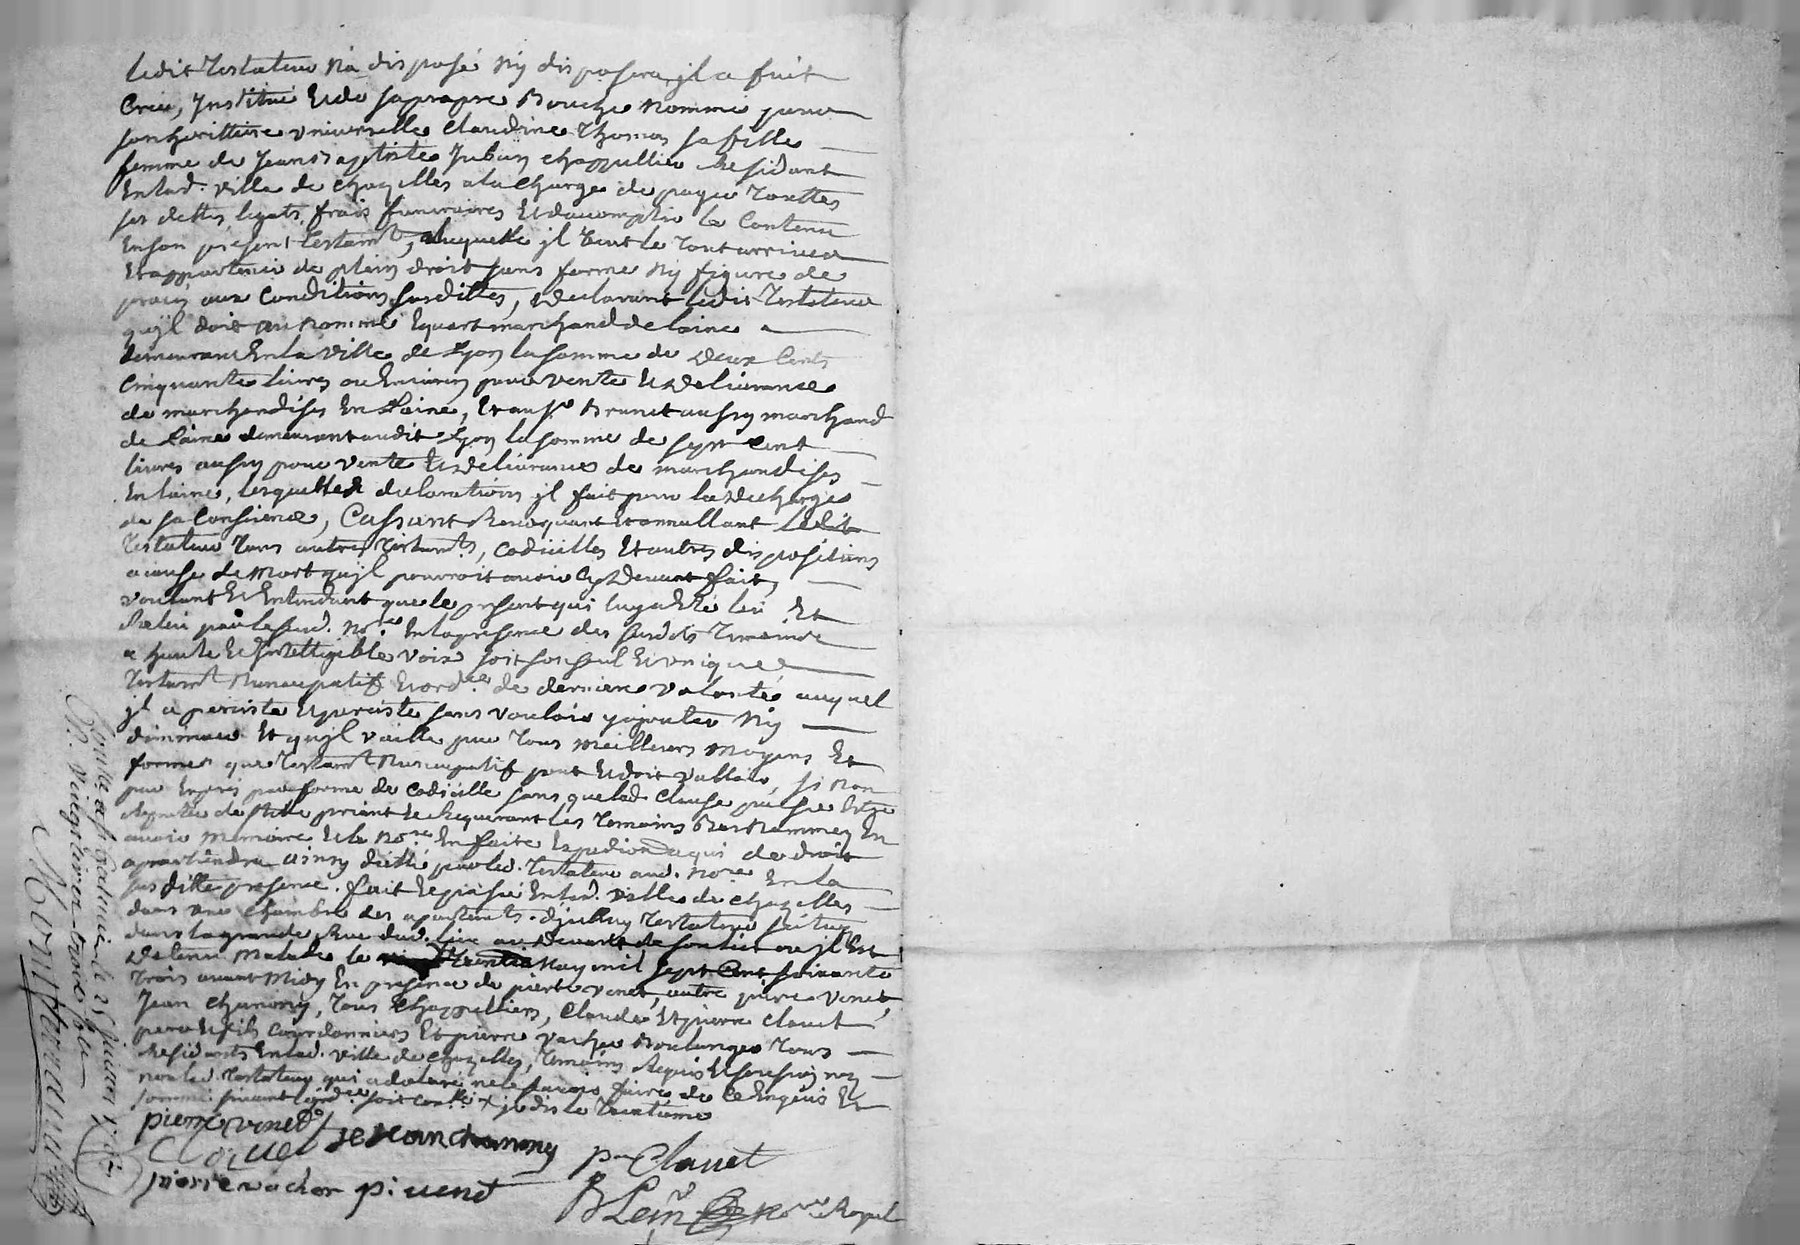 ledit Testateur n'a disposé ny disposera, jl a fait
Creé, Jnstitué Et de sa propre Bouche nommé pour
son herittiere universelle Claudine Thomas sa fille
femme de Jean Baptiste Juban chappellier Residant
En lad. ville de Chazelles a la Charge de payer Touttes
ses dettes legats, frais funeraires Et d'accomplir le Contenu
En son présent testamt, a laquelle jl veut le Tout arriver
Et appartenir de plein droit sans forme Ny figure de
procès aux Conditions susdittes, Declarant ledit Testateur
qu'jl doit au nommé Equart marchand de laine
demeurant En la ville de Lyon la somme de Deux Cents
Cinquante livres ou Environ pour vente Et Delivrance
de marchandises En laine, Et au sr Brunet aussy marchand
de laine demeurant audit Lyon la somme de sept Cent
livres aussy pour vente Et Delivrance de marchandises
En laine, lesquelles declarations jl fait pour la Decharge
de sa Conscience, Cassant Revoquant Et annullant ledit
Testateur Tous autres Testamts, codicilles Et autres dispositions
a cause de Mort qu'jl pourroit avoir Cy Devant fait,
voulant Et Entendant que le présent qui luy a Eté leu Et
Releu par le sud. Nore En la presence des susdts Temoins
a haute Et Jntelligible voix soit son seul Et unique
Testamt Nuncupatif Et ordce de derniere volonté auquel
jl a persisté Et persiste sans vouloir y ajouter Ny
diminuer Et qu'jl vaille par Tous meilleurs moyens Et
formes que Testamt Nuncupatif peut Et doit valloir, si Non
par Exprès par forme de Codicille sans que lad. Clause puisse Etre
Reputée de stile priant Et Requerant les Temoins Bas Nommés En
avoir memoire Et le Nore En faire Expedion a qui de droit
apartiendra ainsy dicté par led. Testateur aud. Nore En la
susditte presence. fait Et passé En lad. ville de Chazelles
dans une Chambre des apartemts djceluy Testateur scituée
dans la grande Rue dud. lieu au Devant de son lict ou jl Est
Detenu Malade le Trente May mil sept Cent soixante
Trois avant Midy En presence de pierre venet, autre pierre venet,
Jean Chanony, Tous Chappelliers, Claude Et pierre Clavet
pere Et fils Courdonniers Et pierre vacher Boulanger Tous
Residants En lad. ville de Chazelles, Temoins Requis Et soussignez
non led. Testateur qui a declaré ne le savoir faire de Ce Enquis Et
sommé suivant l'ordce soit Conlé je dis le Trentieme
pierre venet
Clavet Je Jean chanony
pierre vacher p. venet
pre Clavet
Nore Royal